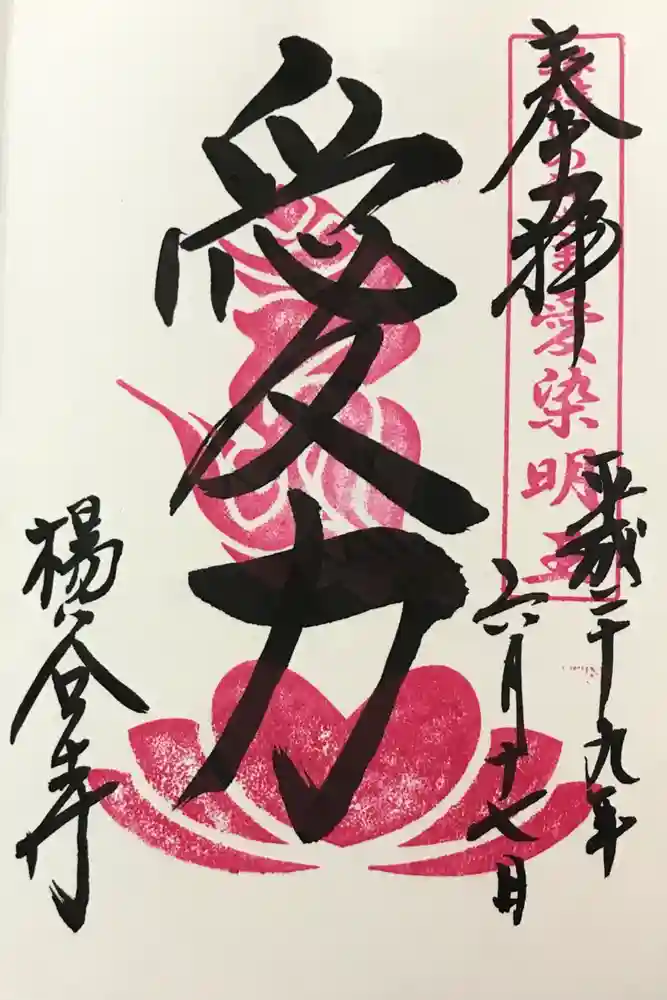 奉拝
愛染明王
平成二十九年
六月十七日
愛力
楊谷寺